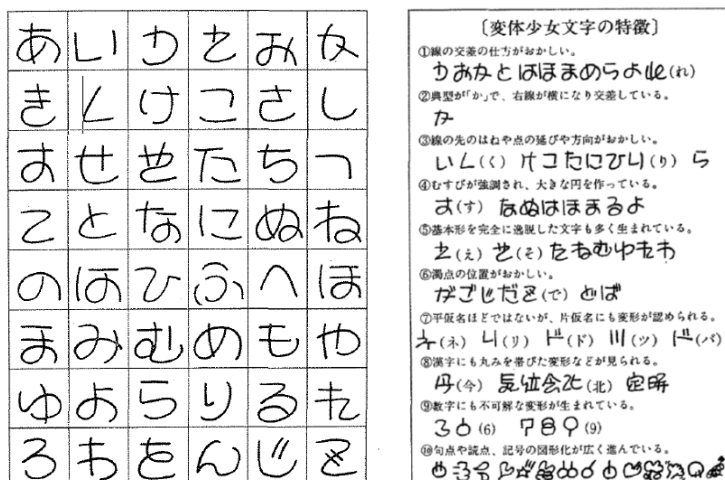 あいうえおか
きくけこさし
すせそたちつ
てとなにぬね
のはひふへほ
まみむめもや
ゆよらりるれ
ろわをんじで
〔変体少女文字の特徴〕
①線の交差の仕方がおかしい。
うおかとはほまめらよれ(れ)
②典型が「か」で、右線が横になり交差している。
か
③線の先のはねや点の延びや方向がおかしい。
いく(く) けこたにひり(り) ら
④むすびが強調され、大きな円を作っている。
す(す) なぬはほまるよ
⑤基本形を完全に逸脱した文字も多く生まれている。
え(え) そ(そ) たねむゆれわ
⑥濁点の位置がおかしい。
がごじだで(で) どば
⑦平仮名ほどではないが、片仮名にも変形が認められる。
ネ(ネ) リ(リ) ド(ド) ツ(ツ) バ(バ)
⑧漢字にも丸みを帯びた変形などが見られる。
⑨数字にも不可解な変形が生まれている。
36(6) 789(9)
⑩句点や読点、記号の図形化が広く進んでいる。